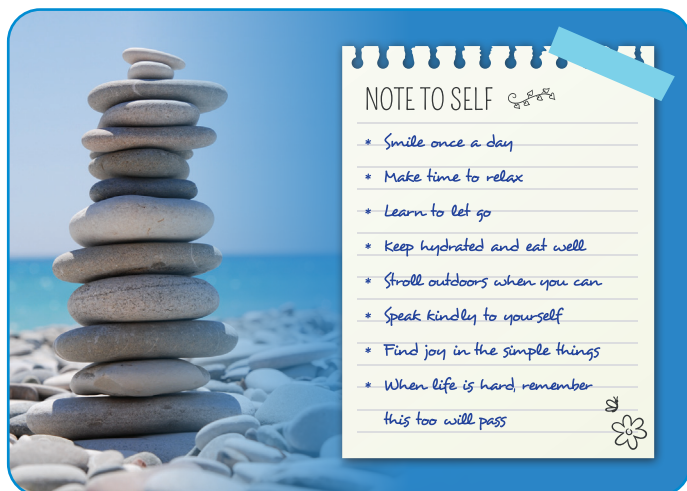 NOTE TO SELF
* Smile once a day
* Make time to relax
* Learn to let go
* Keep hydrated and eat well
* Stroll outdoors when you can
* Speak kindly to yourself
* Find joy in the simple things
* When life is hard, remember
this too will pass